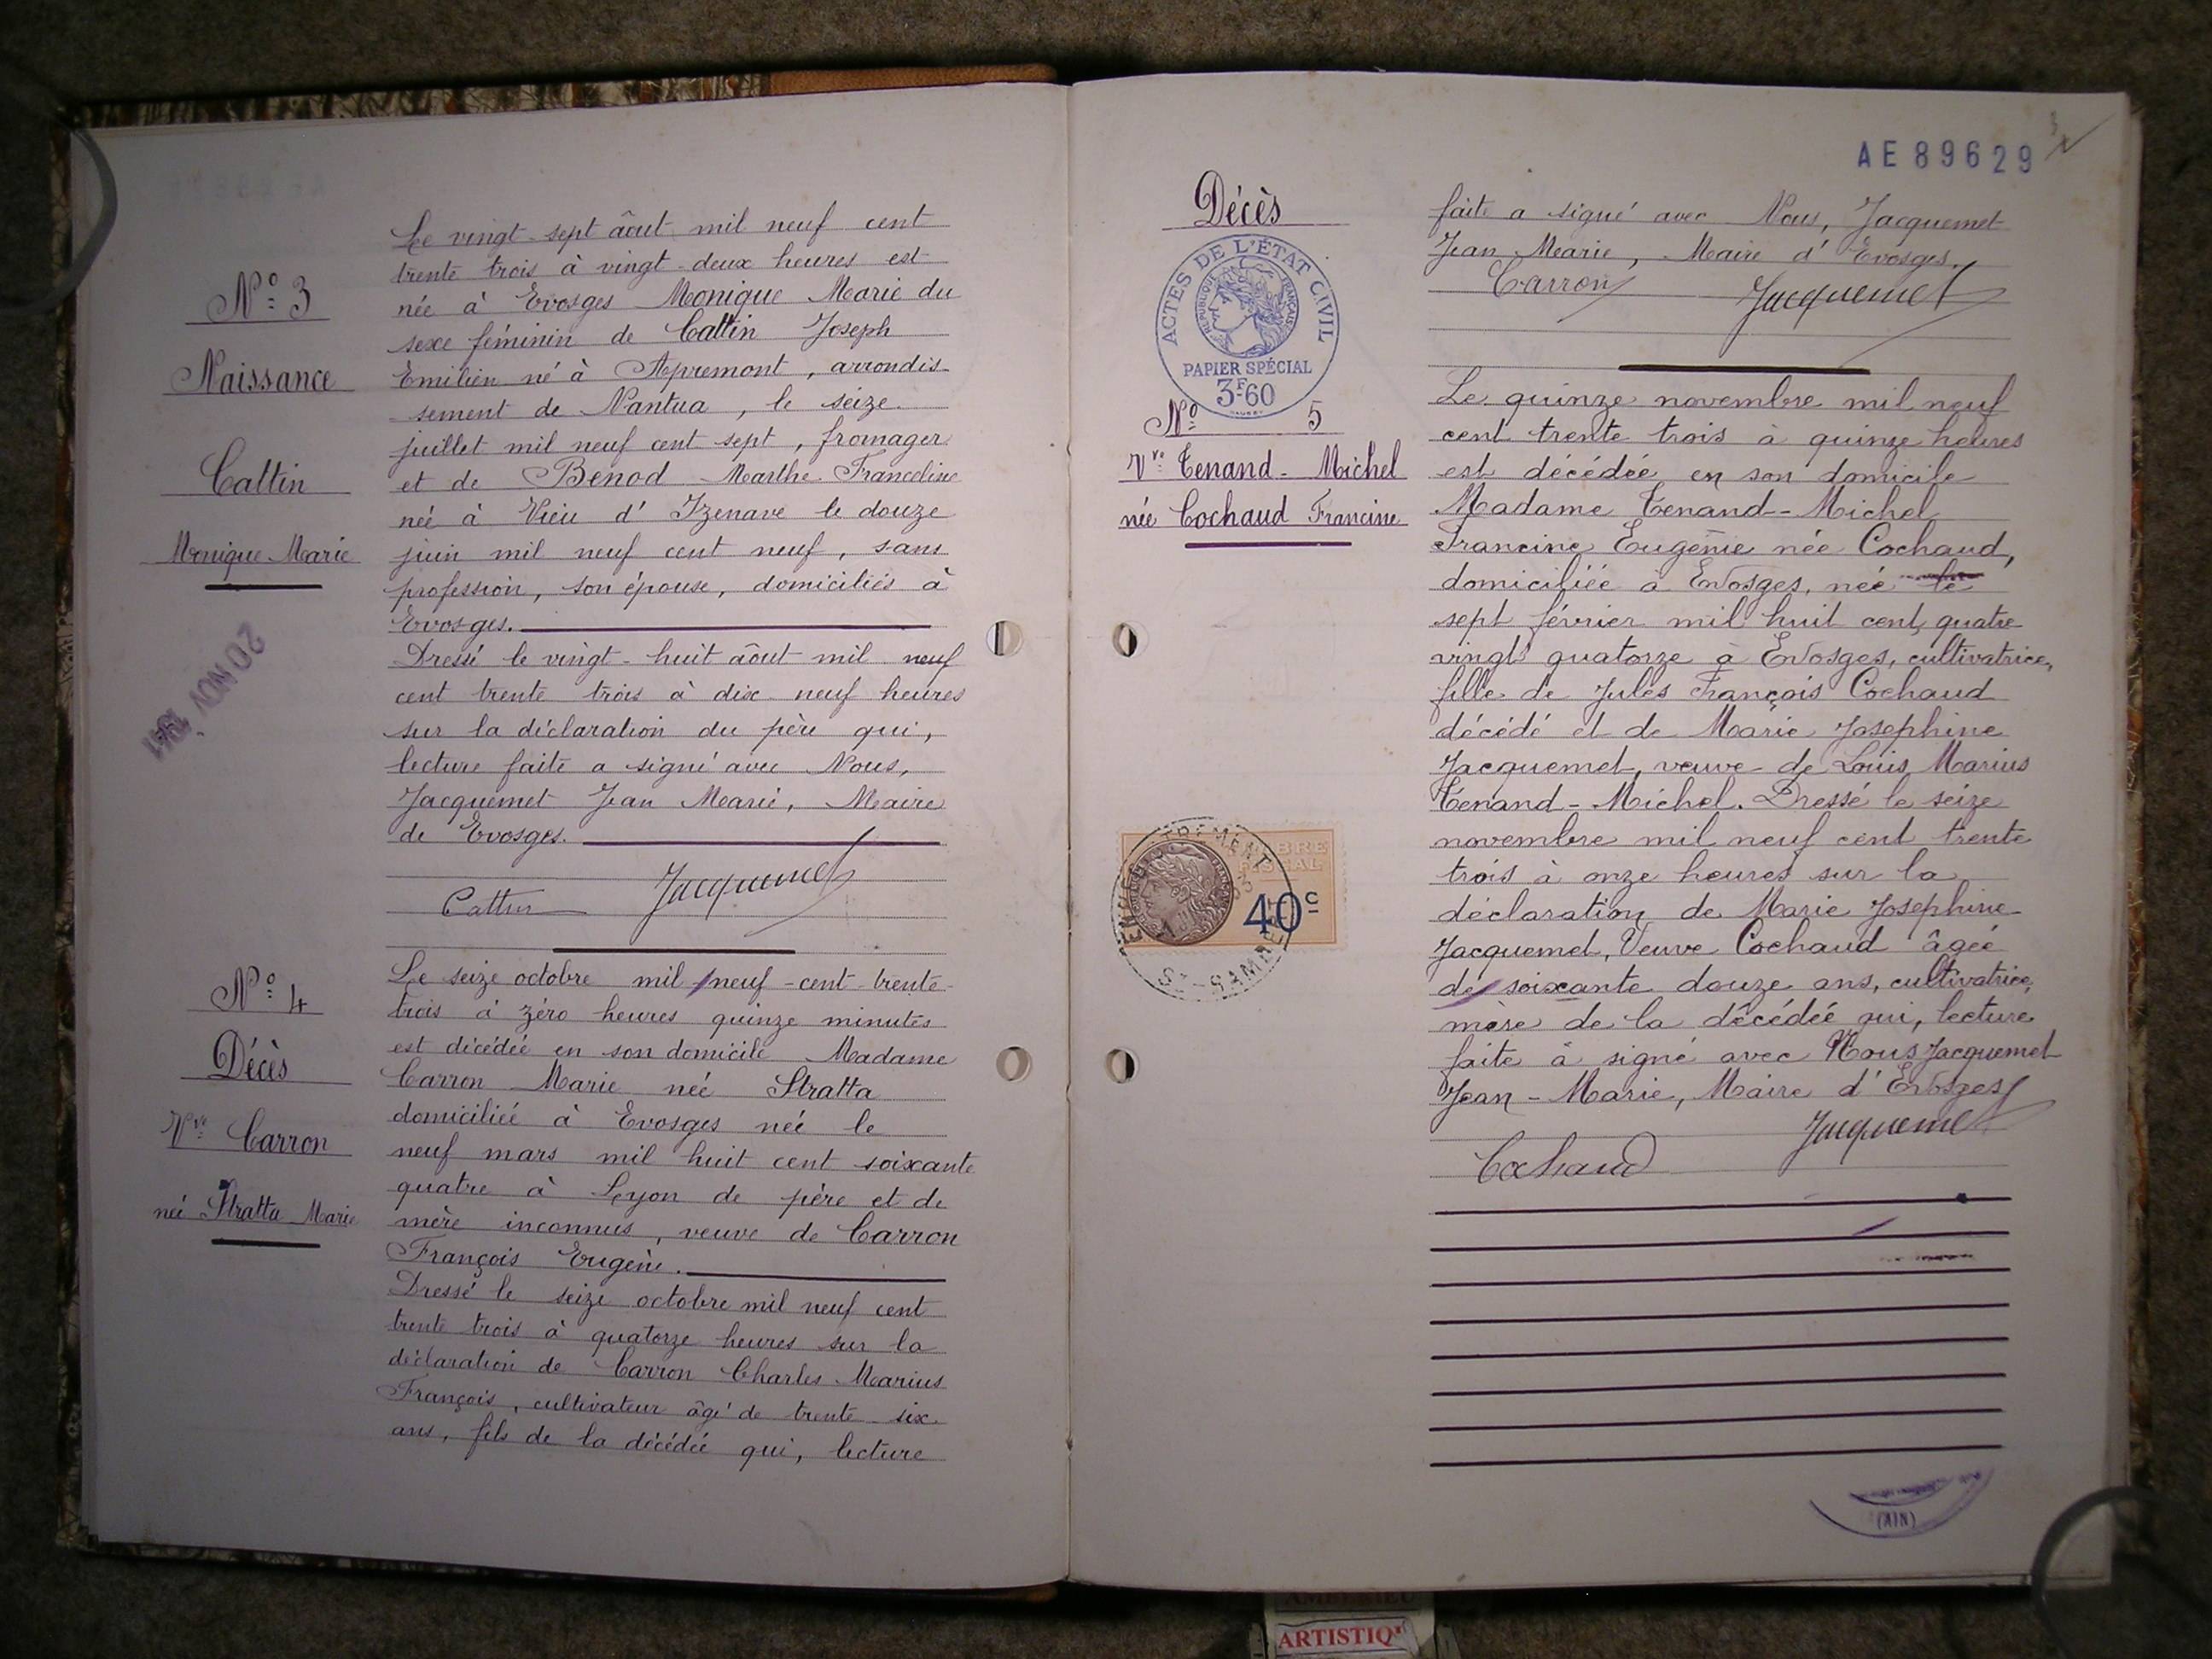 N° 3
Naissance
Cattin
Monique Marie
20 NOV 1941
Le vingt-sept âout mil neuf cent
trente trois à vingt-deux heures est
née à Evosges Monique Marie du
sexe féminin de Cattin Joseph
Emilien né à Apremont, arrondis-
sement de Nantua, le seize
juillet mil neuf cent sept, fromager
et de Benod Marthe Franceline
née à Vieu d'Izenave le douze
juin mil neuf cent neuf, sans
profession, son épouse, domiciliés à
Evosges.
Dressé le vingt-huit âout mil neuf
cent trente trois à dix-neuf heures
sur la déclaration du père qui,
lecture faite a signé avec Nous,
Jacquemet Jean Marie, Maire
de Evosges.
Cattin Jacquemet
N° 4
Décès
Vve Carron
née Stratta Marie
Le seize octobre mil neuf-cent-trente-
trois à zéro heures quinze minutes
est décédée en son domicile Madame
Carron Marie née Stratta
domiciliée à Evosges née le
neuf mars mil huit cent soixante
quatre à Lyon de père et de
mère inconnus, veuve de Carron
François Eugène.
Dressé le seize octobre mil neuf cent
trente trois à quatorze heures sur la
déclaration de Carron Charles Marius
François, cultivateur âgé de trente six
ans, fils de la décédée qui, lecture
AE89629
Décès
ACTES DE L'ÉTAT CIVIL
RÉPUBLIQUE FRANÇAISE
PAPIER SPÉCIAL
3F60
faite a signé avec Nous, Jacquemet
Jean Marie, Maire d'Evosges.
Carron Jacquemet
N° 5
Vve Tenand-Michel
née Cochaud Francine
Le quinze novembre mil neuf
cent trente trois à quinze heures
est décédée en son domicile
Madame Tenand--Michel
Francine Eugénie née Cochaud,
domiciliée à Evosges, née le
sept février mil huit cent quatre
vingt quatorze à Evosges, cultivatrice,
fille de Jules François Cochaud
décédé et de Marie Josephine
Jacquemet, veuve de Louis Marius
Tenand-Michel. Dressé le seize
novembre mil neuf cent trente
trois à onze heures sur la
déclaration de Marie Josephine
Jacquemet, Veuve Cochaud âgée
de soixante douze ans, cultivatrice,
mère de la décédée qui, lecture
faite à signé avec Nous Jacquemet
Jean-Marie, Maire d'Evosges
Cochaud Jacquemet
TIMBRE
FISCAL
40c
ENREGISTREMENT
(AIN)
AMBERIEU
ARTISTIQ